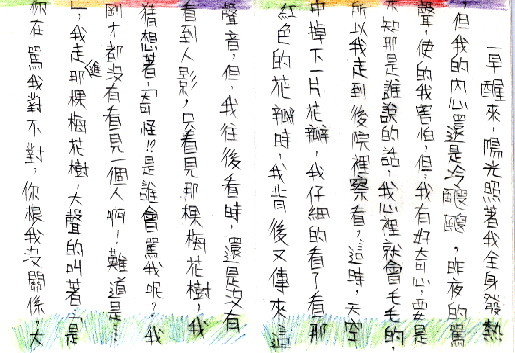 一早醒來，陽光照著我全身發熱
，但我的內心還是冷醲醲，昨夜的罵
聲，使的我害怕，但，我有好奇心，要是
不知那是誰說的話，我心裡就會毛毛的
所以我走到後院裡察看，這時，天空
中掉下一片花瓣，我仔細的看了看那
紅色的花瓣時，我背後又傳來這
聲音，但，我往後看時，還是沒有
看到人影，只看見那棵梅花樹，我
猜想著，奇怪!!是誰會罵我呢？我
剛才都沒有看見一個人啊！難道是…
…，我走進那棵梅花樹，大聲的叫著：是
你在罵我對不對，你恨我沒關係，大